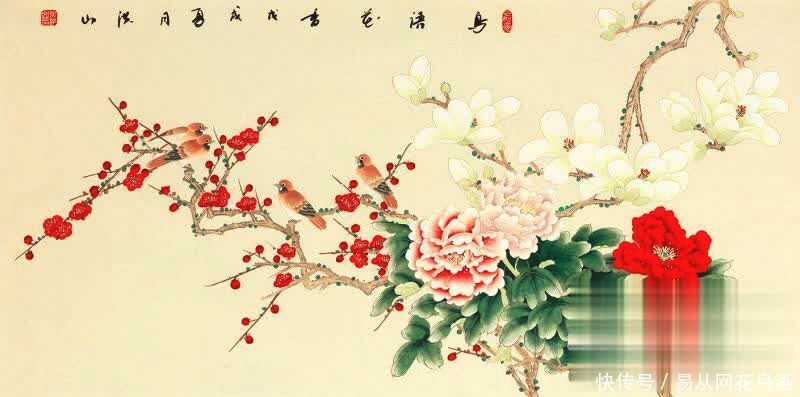 鸟语花香戊戌夏月洪山
快传号 / 易从网花鸟画